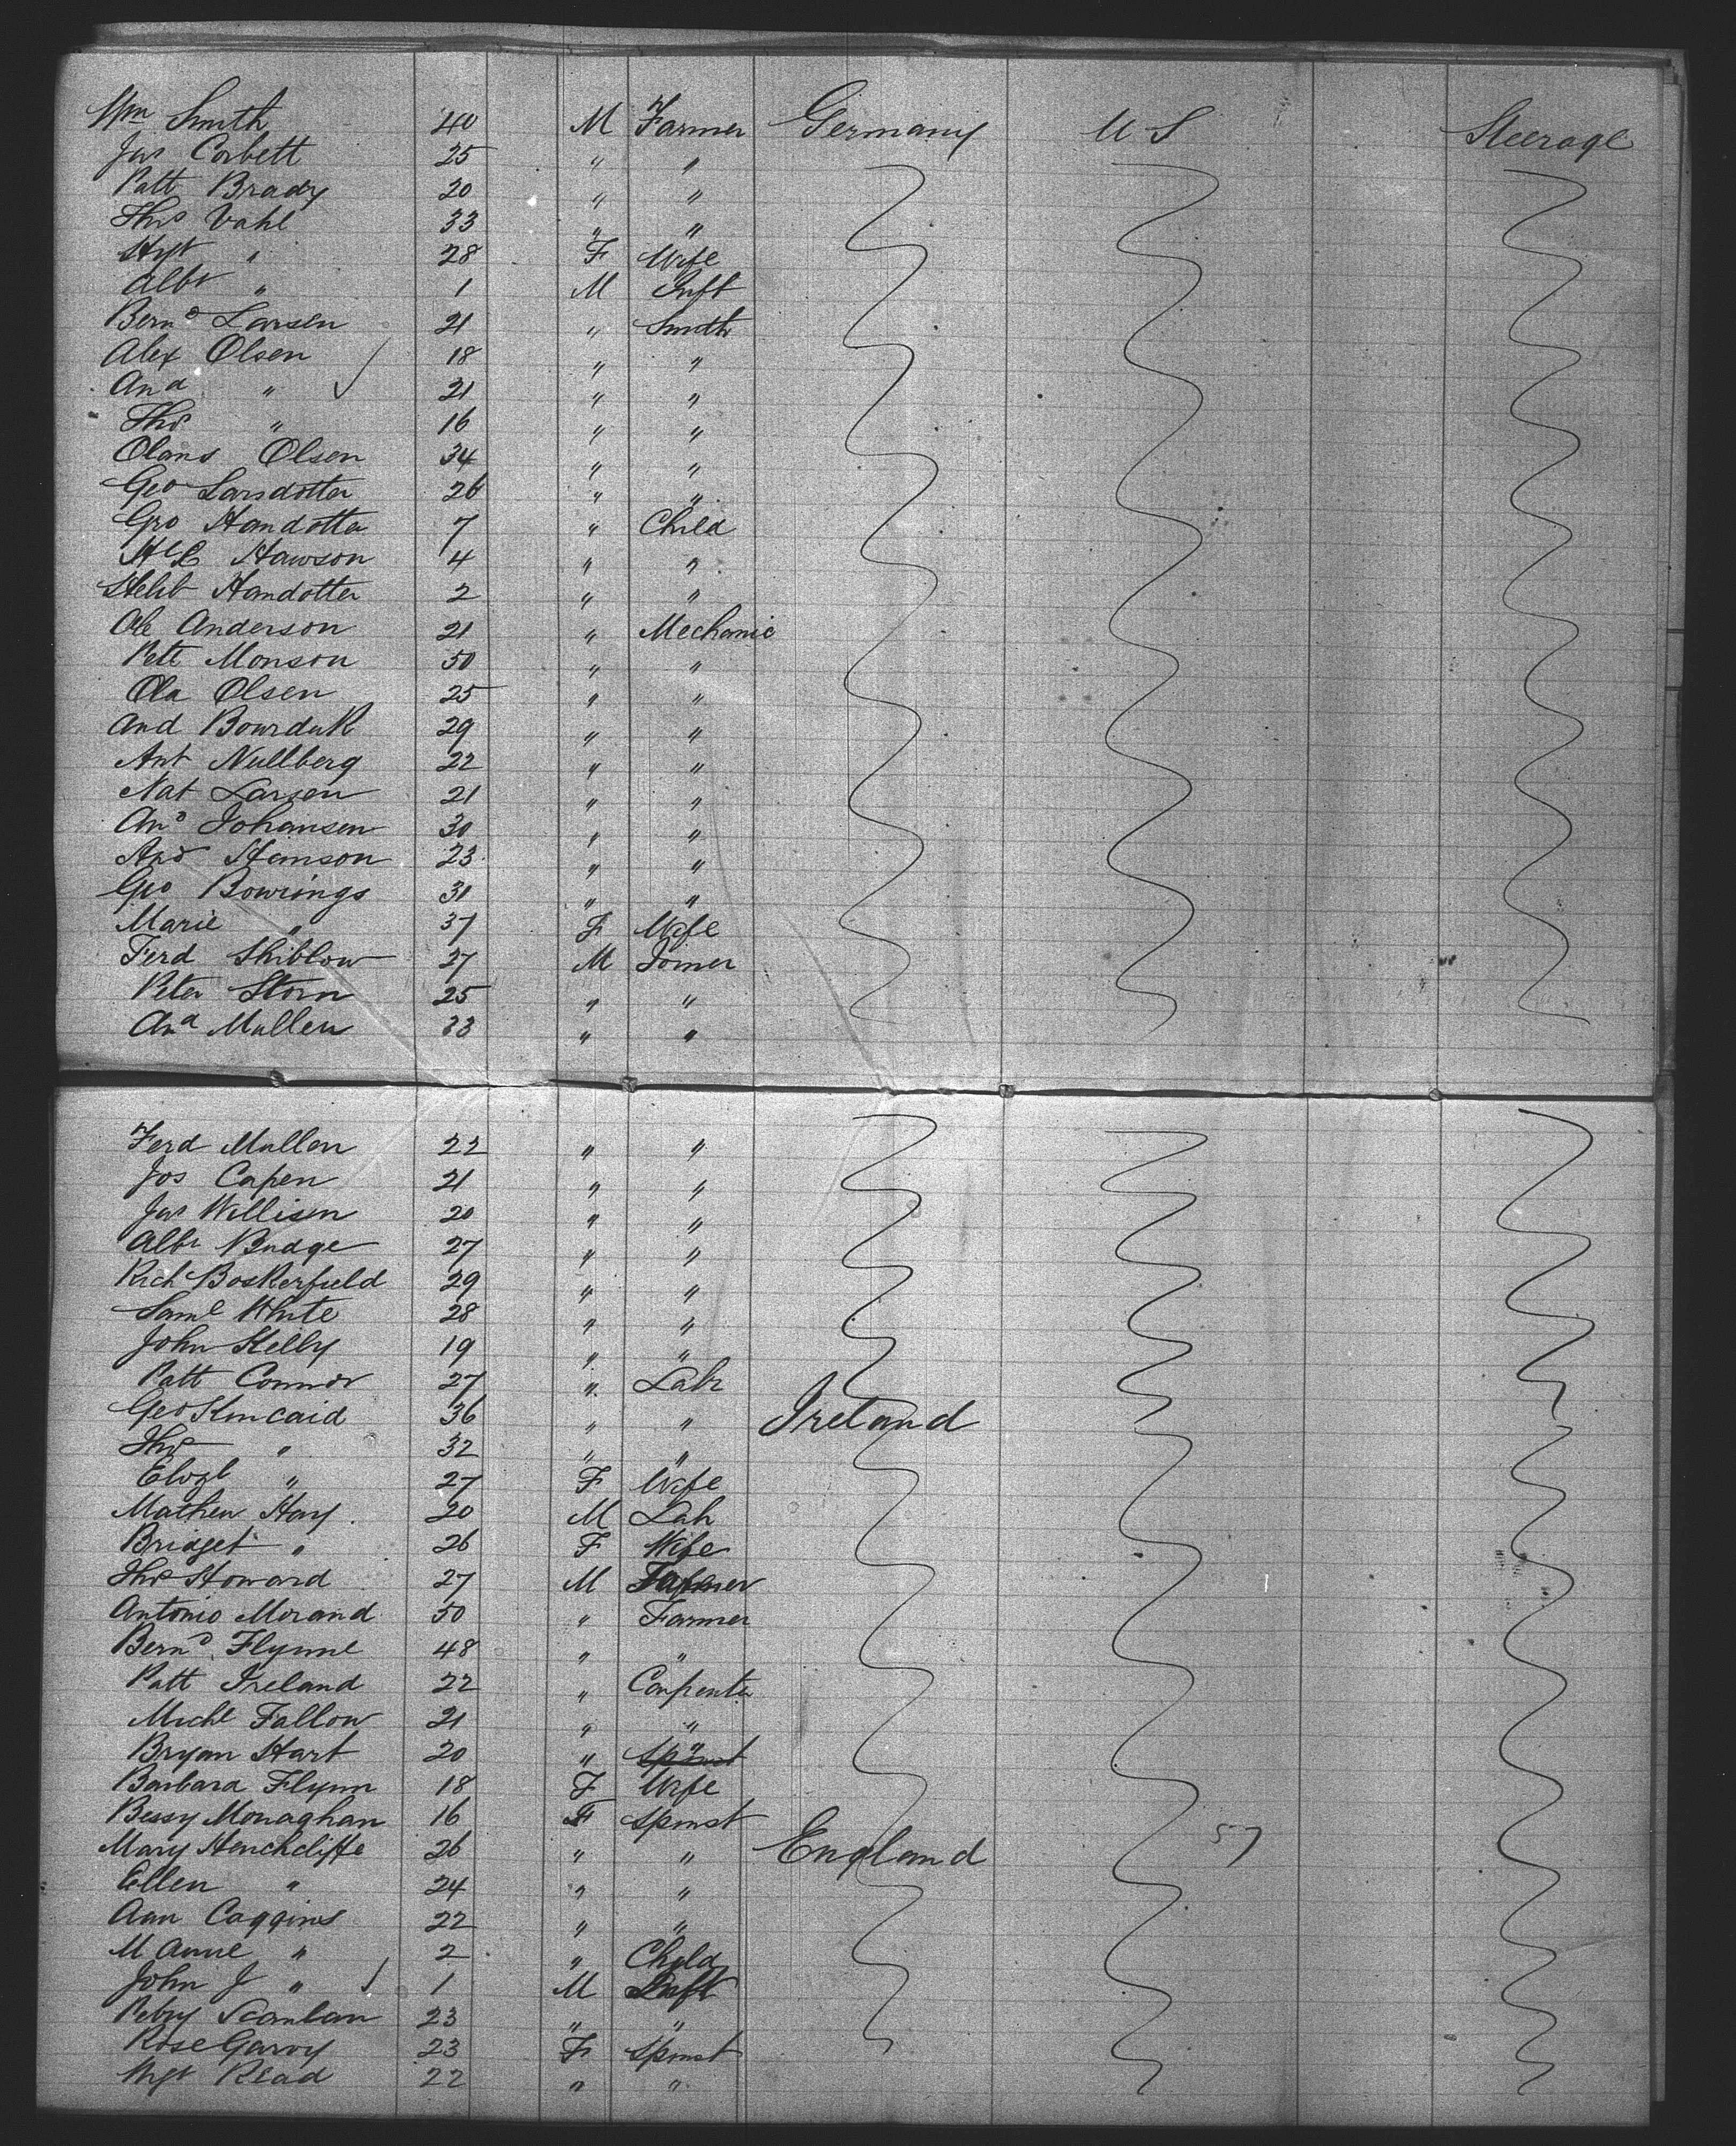 Wm Smith 40 M Farmer Germany U S Steerage
Jas Corbett 25 " "
Patt Brady 20 " "
Thos Vahl 33 " "
" 28 F Wife
Albt " 1 M Inft
Bernd Larsen 21 " Smith
Alex Olsen 18 " "
And " 21 " "
Thos " 16 " "
Olans Olsen 34 " "
Geo Larsdotter 26 " "
Gro Handotter 7 " Child
Hawson 4 " "
Handotter 2 " "
Ole Anderson 21 " Mechanic
Pete Monson 50 " "
Ola Olsen 25 " "
And 29 " "
Ant Nullberg 22 " "
Nat Larsen 21 " "
And Johansen 30 " "
And Hemson 23 " "
Geo Bowrings 31 " "
Marie " 37 F Wife
Ferd Shiblow 27 M Joiner
Peter Storn 25 " "
And Mullen 33 " "
Ferd Mullen 22 " "
Jos Capen 21 " "
Jas Willisen 20 " "
Albt Budge 27 " "
Rich Boskerfield 29 " "
Saml White 28 " "
John Kelly 19 " "
Patt Connor 27 " Labr
Geo Kincaid 36 " " Ireland
Thos " 32 " "
Elizbt " 27 F Wife
Mathew Hay 20 M Lab
Bridget " 26 F Wife
Thos Howard 27 M Farmer
Antonio Morand 50 " Farmer
Bernd Flynne 48 " "
Patt Ireland 22 " Carpenter
Michl Fallow 21 " "
Bryan Hart 20 " Spinst "
Barbara Flynn 18 F Wife
Bessy Monaghan 16 F Spinst
Mary Henchcliffe 26 " " England 57
Ellen " 24 " "
Ann Coggins 22 " "
M Anne " 2 " Child
John J " 1 M Inft
Scanlan 23 " "
Rose Garvy 23 F Spinst
Mgt Read 22 " "